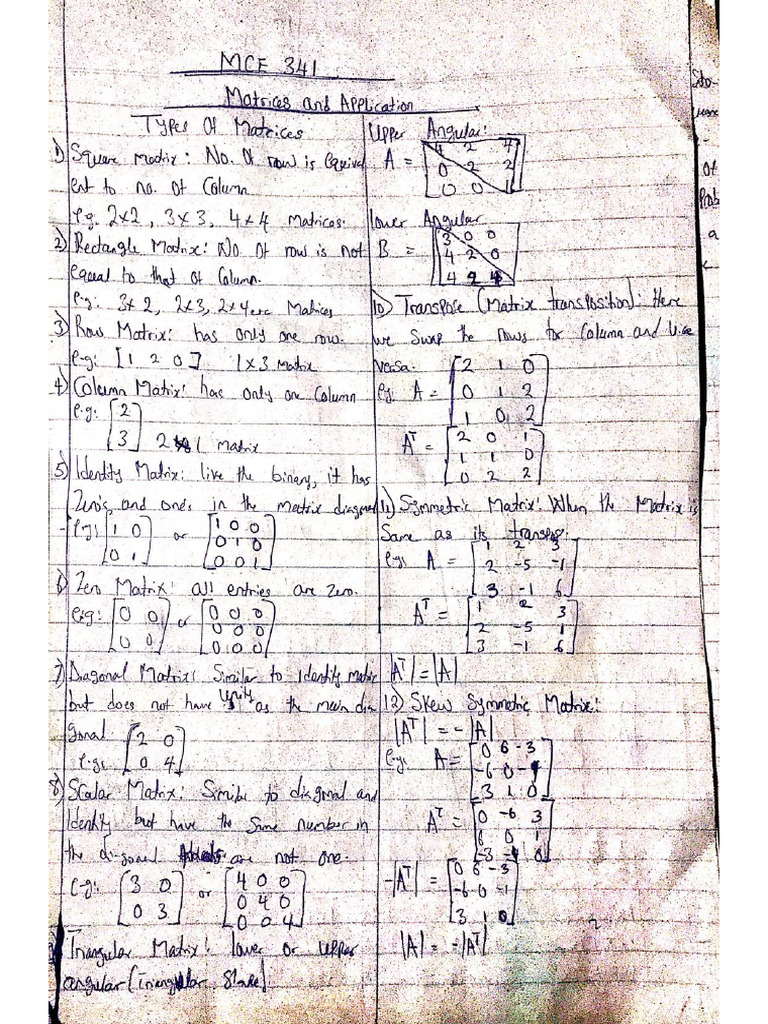 MCE 341
Matrices and Application
Types Of Matrices
1) Square Matrix: No. Of row is equival
ent to no. of Column
e.g. 2x2, 3x3, 4x4 Matrices.
2) Rectangle Matrix: No. Of row is not
equal to that of Column.
e.g: 3x2, 2x3, 2x4 etc Matrices
3) Row Matrix: has only one row.
e.g: [1 2 0] 1x3 Matrix
4) Column Matrix: has only one Column
e.g: [2
3] 2x1 matrix
5) Identity Matrix: like the binary, it has
Zero's and ones in the matrix diagonal
e.g: [1 0
0 1] or [1 0 0
0 1 0
0 0 1]
6) Zero Matrix: all entries are zero.
e.g: [0 0
0 0] or [0 0 0
0 0 0
0 0 0]
7) Diagonal Matrix: Similar to Identity matrix
but does not have unity as the main dia
gonal
e.g: [2 0
0 4]
8) Scalar Matrix: Similar to diagonal and
Identity but have the Same number in
the diagonal are not one.
e.g: [3 0
0 3] or [4 0 0
0 4 0
0 0 4]
Triangular Matrix: lower or upper
angular (Triangular Shape)
Upper Angular:
A = [4 2 4
0 2 2
0 0 1]
lower Angular
B = [3 0 0
4 2 0
4 2 4]
10) Transpose (Matrix transposition): Here
we Swap the rows for Column and Vice
versa.
e.g: A = [2 1 0
0 1 2
1 0 2]
A^T = [2 0 1
1 1 0
0 2 2]
11) Symmetric Matrix: When the Matrix is
Same as its transpos.
e.g: A = [1 2 3
2 -5 -1
3 -1 6]
A^T = [1 2 3
2 -5 1
3 -1 6]
|A^T| = |A|
12) Skew Symmetric Matrix:
|A^T| = -|A|
e.g: A = [0 6 -3
-6 0 -1
3 1 0]
A^T = [0 -6 3
6 0 1
-3 -1 0]
-|A^T| = [0 6 -3
-6 0 -1
3 1 0]
|A| = -|A^T|
Of
Prob
a